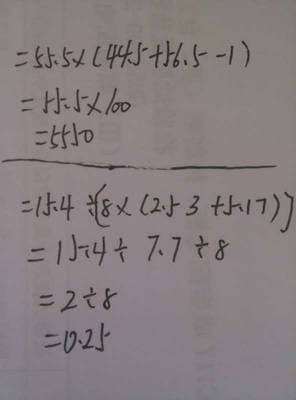 =55.5×(44.5+56.5-1)
=55.5×100
=5550
=15.4÷[8×(2.53+5.17)]
=15.4÷7.7÷8
=2÷8
=0.25